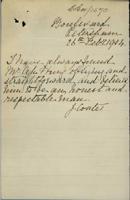 Boulevard
Petersham
26th Feb 1904
I have always found
Mr Ah Foung obliging and
straightforward and believe
him to be an honest and
respectable man.
J Coates